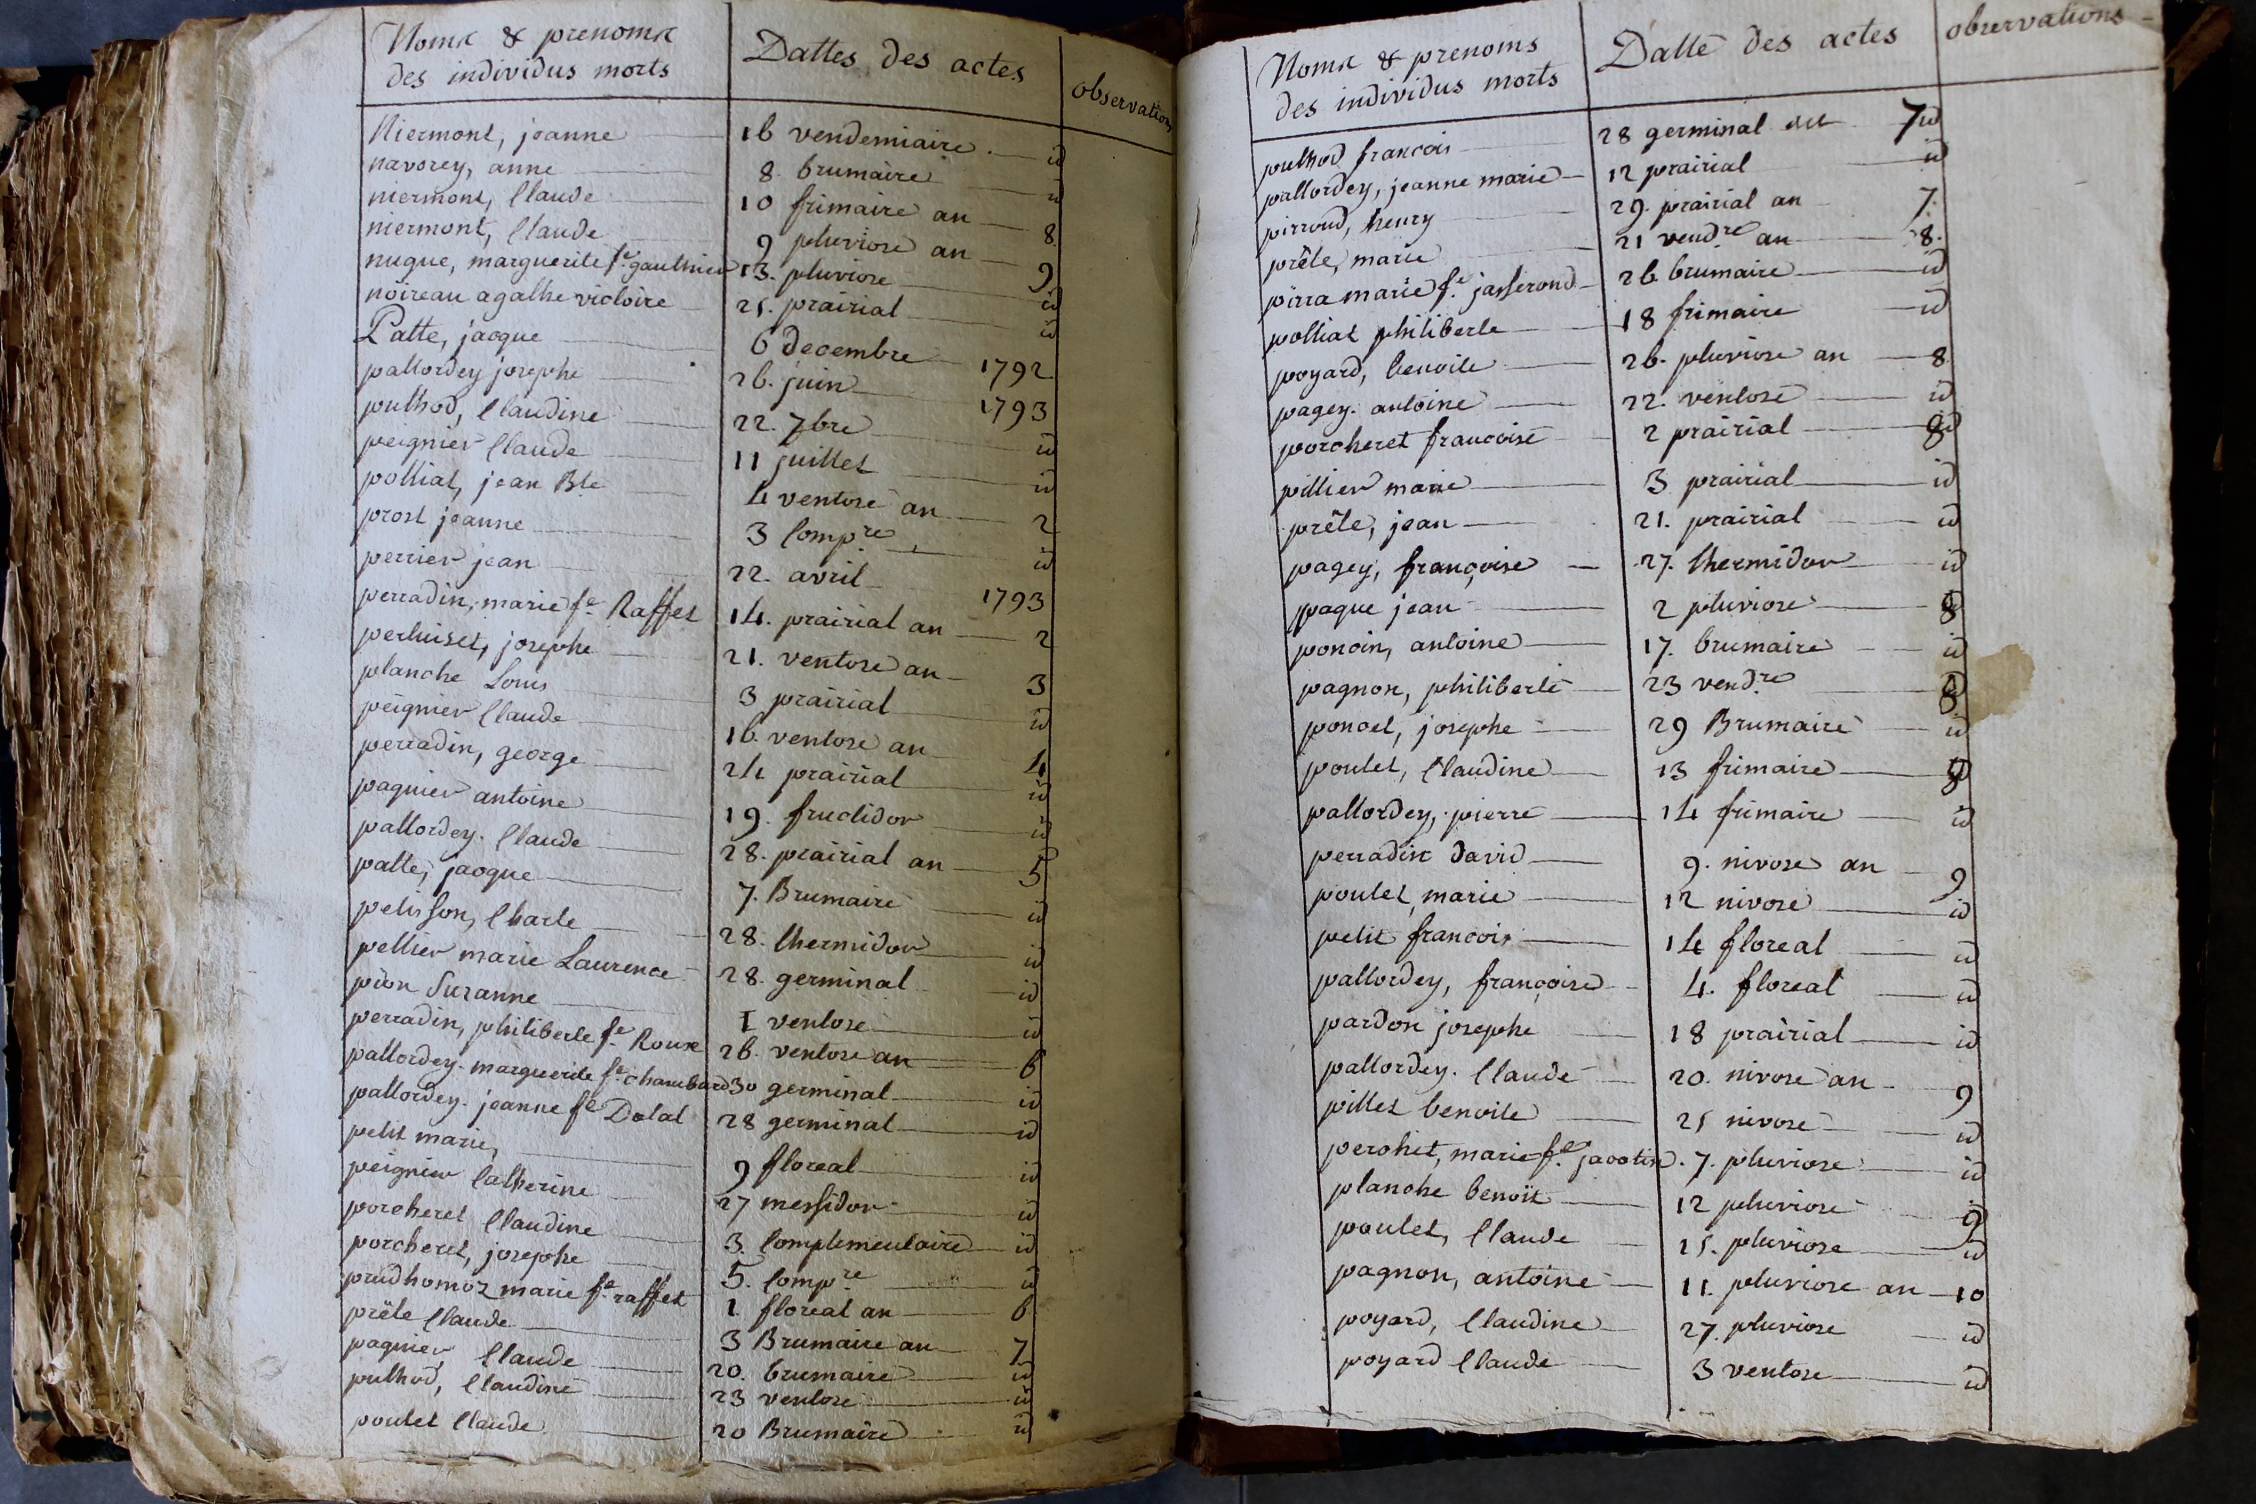 Noms & prenoms
des individus morts
Dattes des actes
observations
Niermont, jeanne 16 vendemiaire id
navorey, anne 8 brumaire id
niermont, Claude 10 frimaire an 8.
niermont, Claude 9 pluviose an 9
nugue, marguerite fe. gauthier 13. pluviose id
noireau agathe victoire 25. prairial id
Patte, jacque 6 decembre 1792
pallordey josephe 26. juin 1793
puthod, Claudine 22. 7bre id
peignier Claude 11 juillet id
polliat, jean Bte 4 ventose an 2
prost jeanne 3 Compre id
perrier jean 22. avril 1793
perradin, marie fe. Raffet 14. prairial an 2
perluiset, josephe 21. ventose an 3
planche Louis 3 prairial id
peignier Claude 16 ventose an 4
perradin, george 24 prairial id
pagnier antoine 19. fructidor id
pallordey. Claude 28. prairial an 5
patte, jacque 7. Brumaire id
pelisson, Charle 28. thermidor id
pellier marie Laurence 28. germinal id
pion Suzanne 1 ventose id
perradin, philiberte fe. Roux 26. ventose an 6
pallordey. marguerite fe. chambard 30 germinal id
pallordey. jeanne fe. Dalal 28 germinal id
petit marie, 9 floreal id
peignier Catherine 27 messidor id
porcheret Claudine 3. Complementaire id
porcheret, josephe 5. Compre id
prudhomoz marie fe. raffet 1. floreal an 6
prêle Claude 3 Brumaire an 7
pagnier, Claude 20. brumaire id
puthod, Claudine 23 ventose id
poulet Claude 20 Brumaire id
Noms & prenoms
des individus morts
Datte des actes
observations
puthod francois 28 germinal an 7
pallordey, jeanne marie 12 prairial id
pirroud, henry 29. prairial an 7.
prêle, marie 21 vendre an 8.
pirra marie fe. jasserond 26 brumaire id
polliat philiberte 18 frimaire id
poyard, benoite 26. pluviose an 8
pagey. antoine 22. ventose id
porcheret francoise 2 prairial 8
pillier marie 3 prairial id
prêle, jean 21. prairial id
pagey, françoise 27. thermidor id
paque jean 2 pluviose 8
poncin, antoine 17. brumaire id
pagnon, philiberte 23 vendre 8
poncet, josephe 29 Brumaire id
poulet, Claudine 13 frimaire 9
pallordey, pierre 14 frimaire id
perradin David 9. nivose an 9
poulet, marie 12 nivose id
petit francois 14 floreal id
pallordey, françoise 4. floreal id
pardon josephe 18 prairial id
pallordey. Claude 20. nivose an 9
pillet benoite 25 nivose id
perchet, marie fe. jacotin. 7. pluviose id
planche benoît 12 pluviose 9
poulet, Claude 15. pluviose id
pagnon, antoine 11. pluviose an 10
poyard, Claudine 27. pluviose id
poyard Claude 3 ventose id